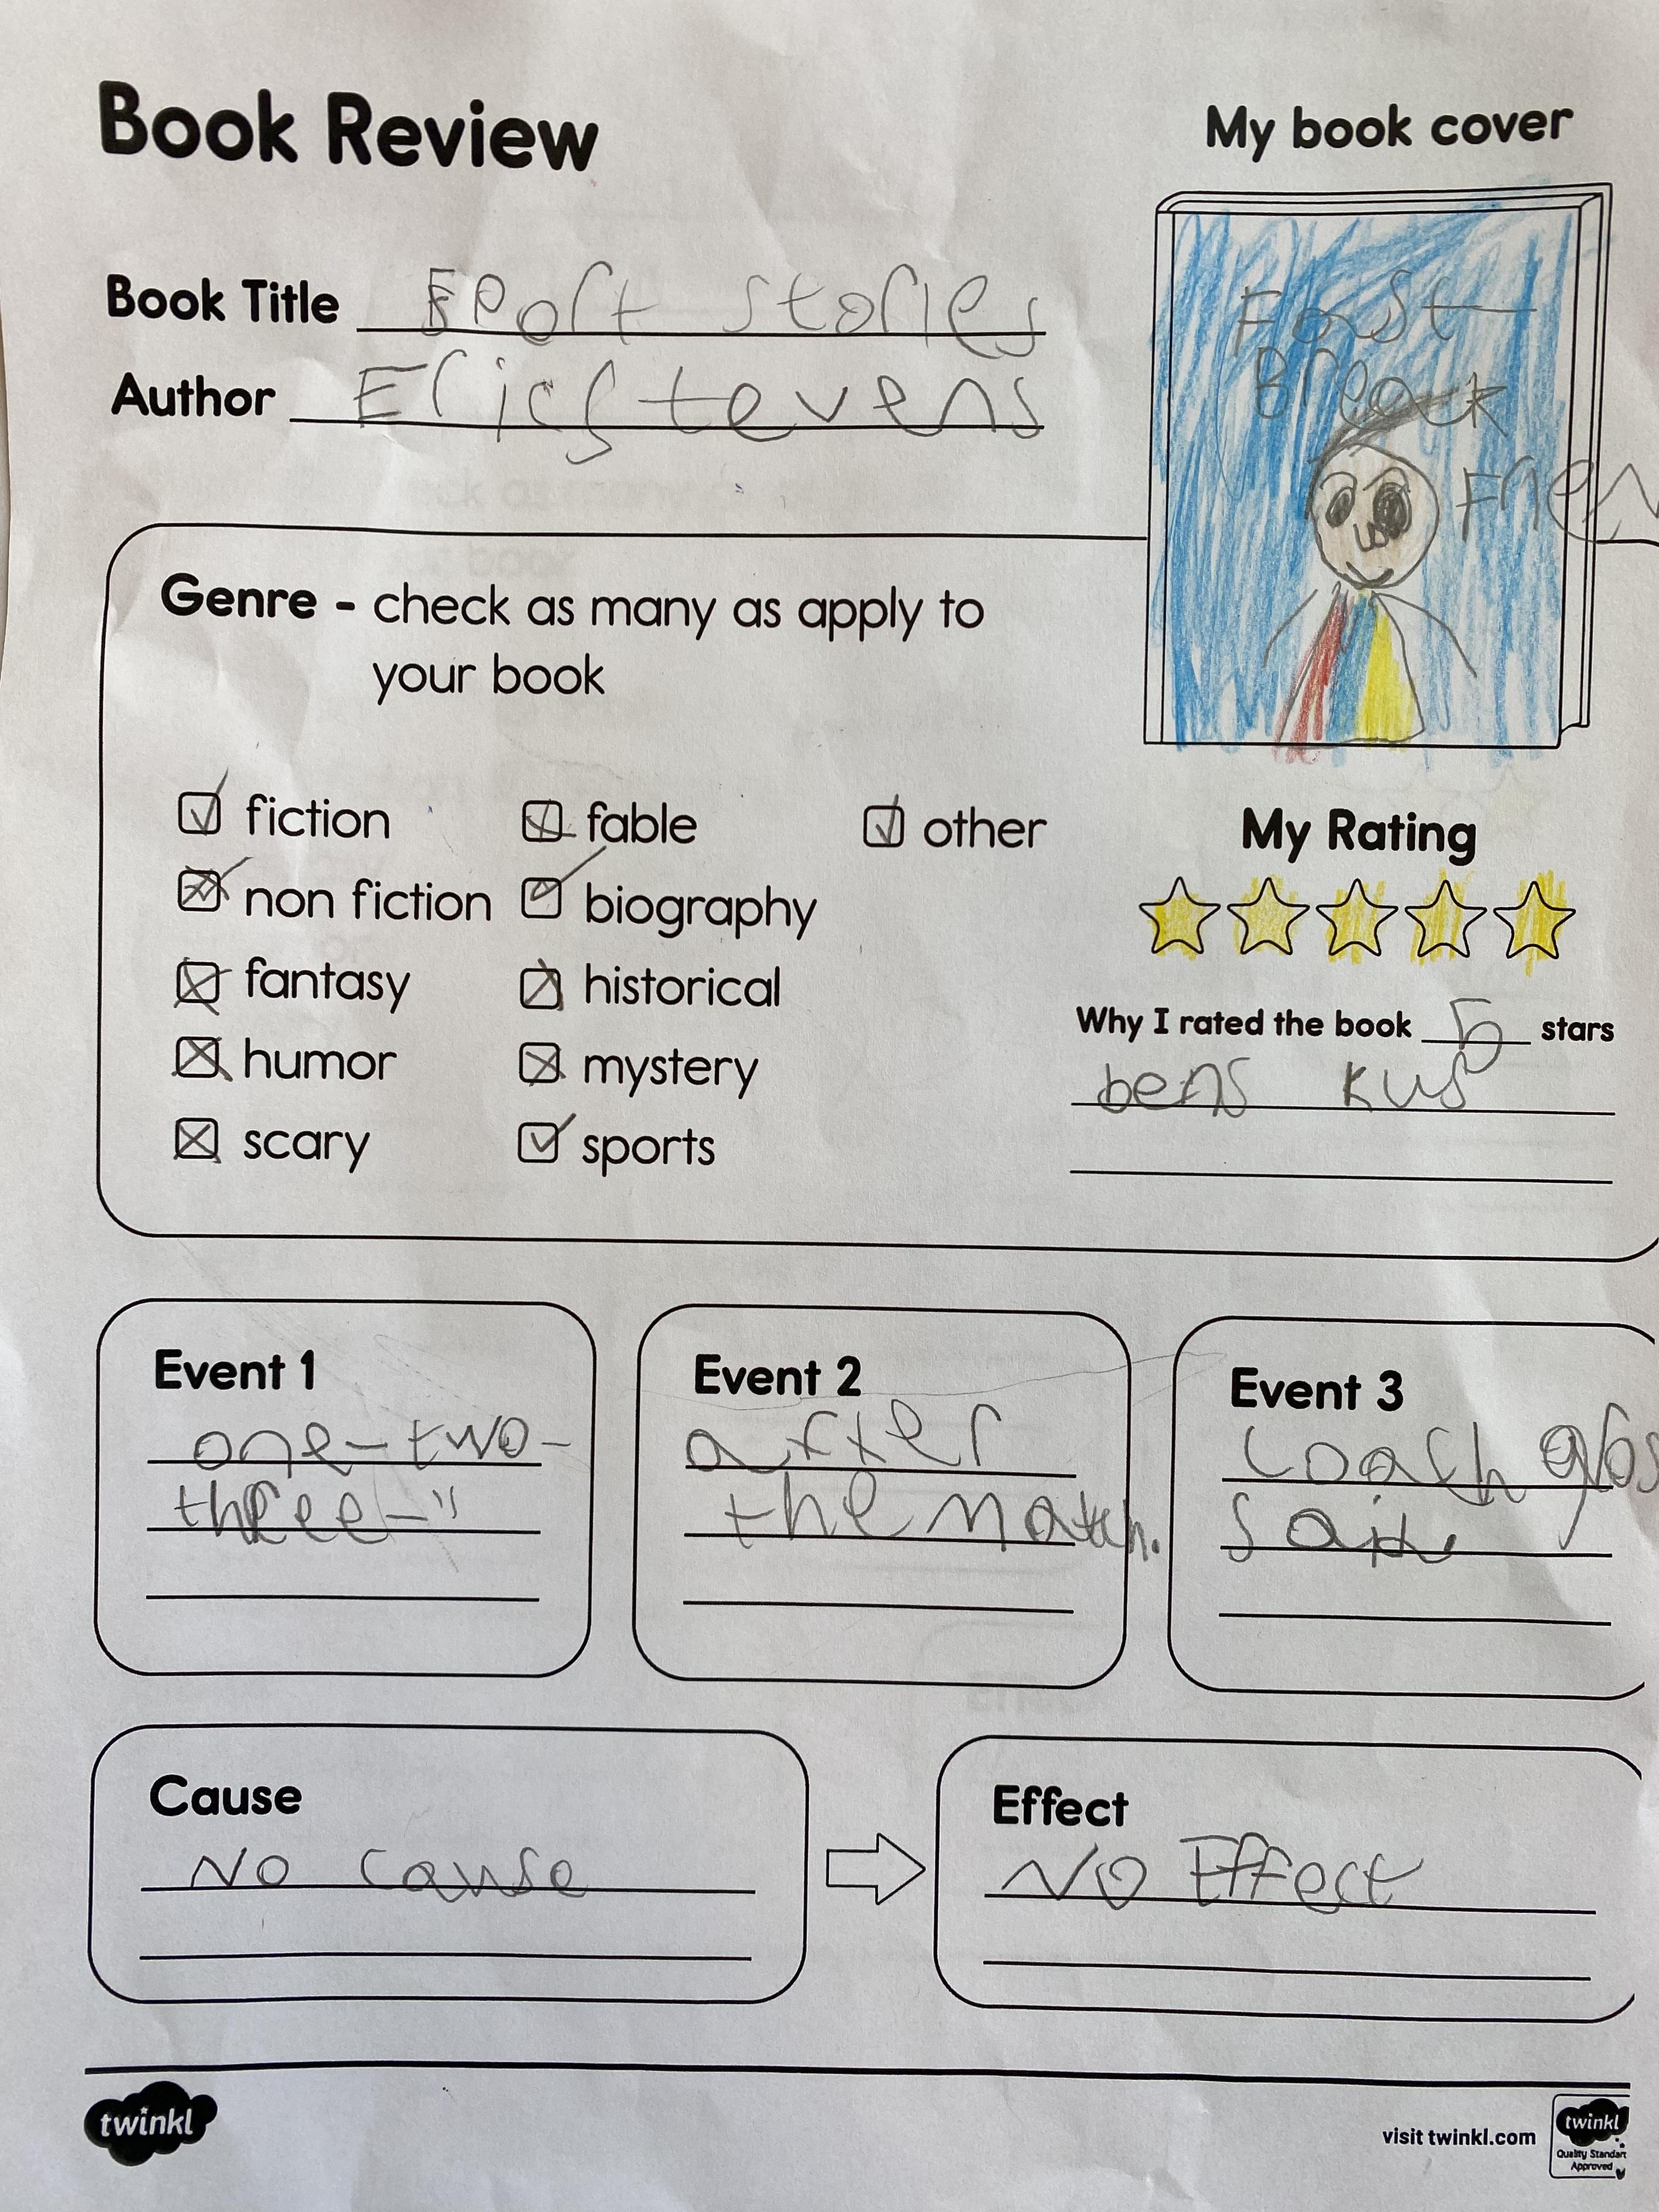 Book Review
My book cover
Book Title Sport stories
Author Eric Stevens
Fast
Break
Frien
Genre - check as many as apply to
your book
fiction
fable
other
non fiction
biography
fantasy
historical
humor
mystery
scary
sports
My Rating
Why I rated the book 5 stars
bens kus
Event 1
one-two-
three-"
Event 2
after
the match.
Event 3
coach
Cause
No cause
Effect
No Effect
twinkl
visit twinkl.com
twinkl
Quality Standard
Approved